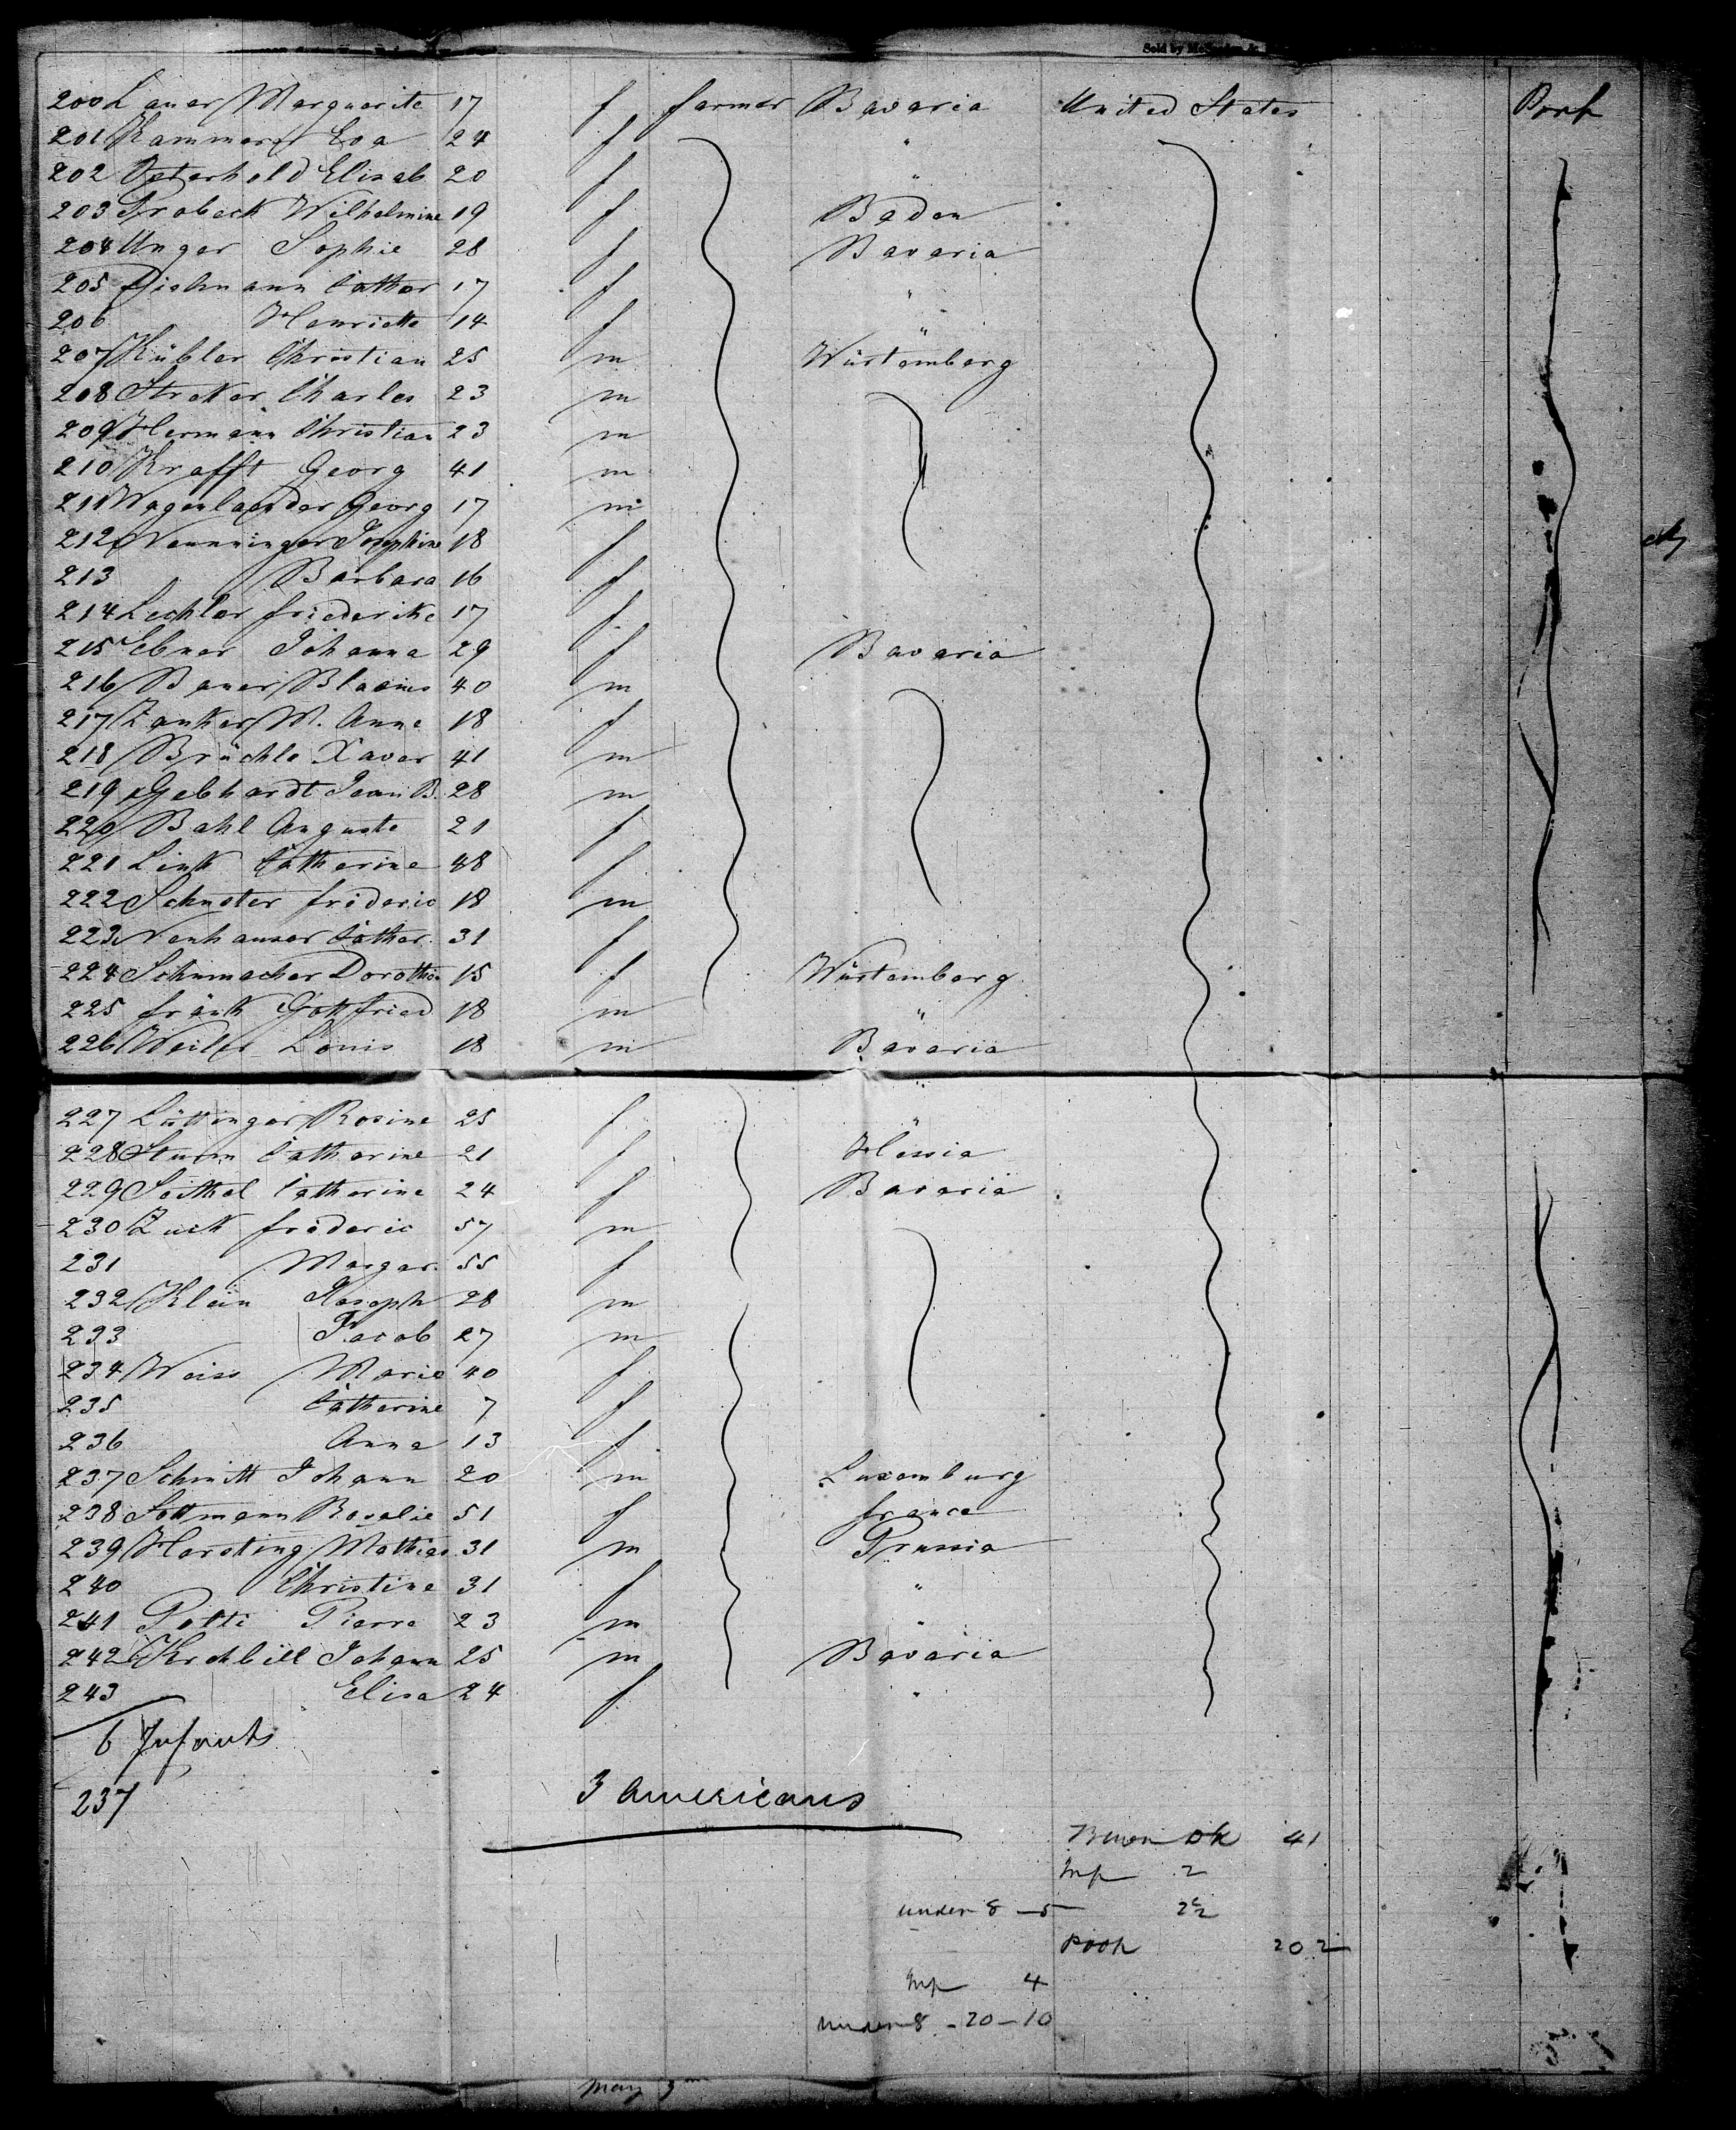 Sold by
200 Lauer Marguerite 17 f farmer Bavaria United States Poop
201 Kammerer Eva 24 f "
202 Osterhold Elisab 20 f "
203 Srobeck Wilhelmine 19 f Baden
204 Unger Sophie 28 f Bavaria
205 Dichmann Cather 17 f "
206 Henriette 14 f "
207 Kübler Christian 25 m Würtemberg
208 Streker Charles 23 m
209 Hermann Christian 23 m
210 Krafft Georg 41 m
211 Wagenlaender Georg 17 m
212 Nenninger Josephine 18 f
213 Barbara 16 f
214 Lechler friederike 17 f
215 Ebner Johanna 29 f Bavaria
216 Bauer Blasius 40 m
217 Zanker M. Anna 18 f
218 Brüchle Xaver 41 m
219 Gebhardt Jean B. 28 m
220 Bahl Auguste 21 f
221 Link Catherine 48 f
222 Schuster fréderic 18 m
223 Neuhauser Cather. 31 f
224 Schumacher Dorothe 15 f Würtemberg
225 fränk Gottfried 18 m "
226 Weiler Louis 18 m Bavaria
227 Löttinger Rosine 25 f "
228 Sturm Catharine 21 f Hessia
229 Seithel Catherine 24 f Bavaria
230 Zuck fréderic 57 m
231 Margar. 55 f
232 Klein Joseph 28 m
233 Jacob 27 m
234 Weiss Marie 40 f
235 Catherine 7 f
236 Anna 13 f
237 Schmitt Johann 20 m Luxemburg
238 Sottmann Rosalie 51 f france
239 Horsting Mathias 31 m Prussia
240 Christine 31 f "
241 Potti Pierre 23 m "
242 Krehbill Johann 25 m Bavaria
243 Elisa 24 f "
6 Infants
237
3 Americans
41
Inf 2
under 8 — 5 2½
Poop 202
Inf 4
under 8 - 20 - 10
May 3